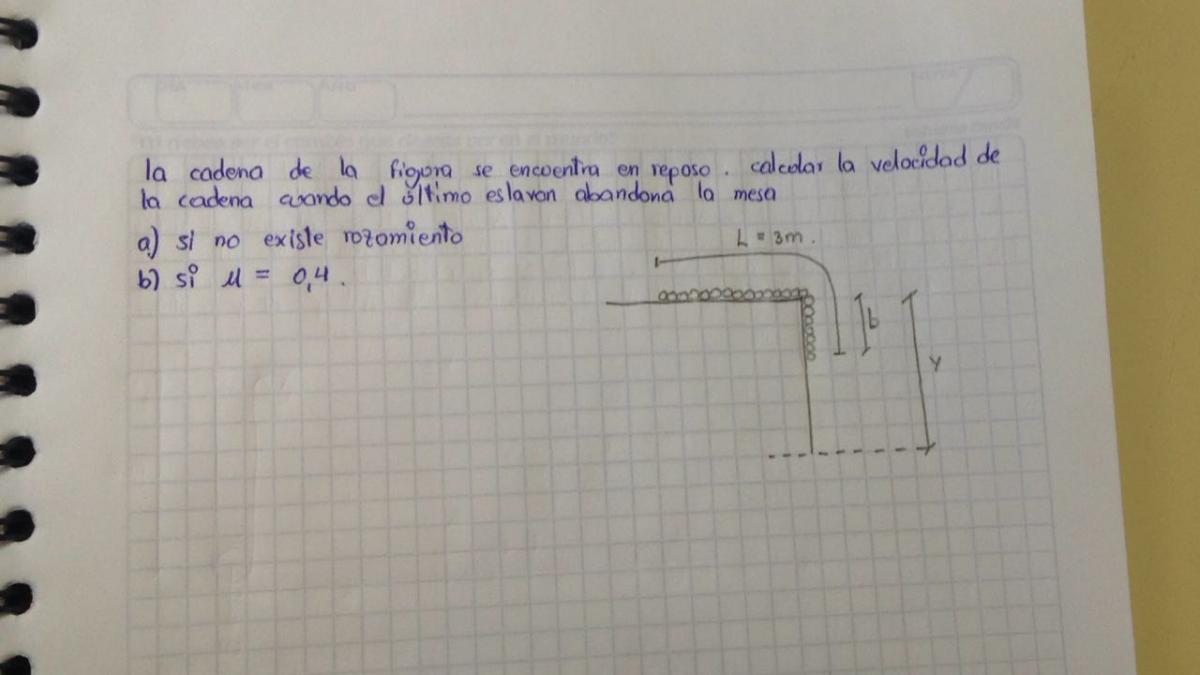 la cadena de la figura se encuentra en reposo. calcular la velocidad de
la cadena cuando el último eslavon abandona la mesa
a) si no existe rozamiento
b) si μ = 0,4.
L = 3m.
b
y